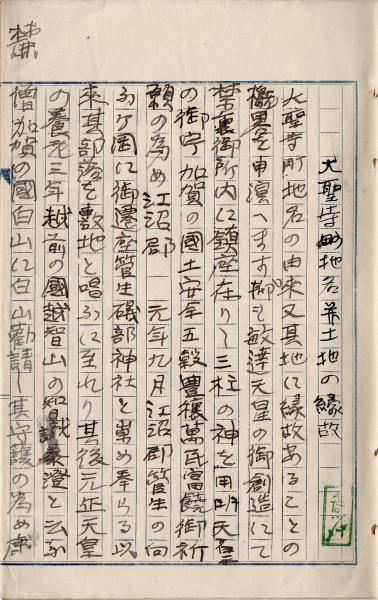 大聖寺町地名并土地の縁故
大聖寺町地名の由来又其地に縁故あることの
概畧を申演へます抑も敏達天皇の御創造にて
禁裏御所内に鎮座在りし三柱の神を用明天皇
の御宇加賀の國土安全五穀豊穣萬民富饒御祈
願の為め江沼郡 元年九月江沼郡管生の向
ふケ岡に御遷座管生礒部神社と崇め奉らる以
来其部落を敷地と唱ふに至れり其後元正天皇
の養老三年越前の國越智山の智識泰澄と云ふ
僧加賀の國白山に白山勸請し其守護の為め
禁